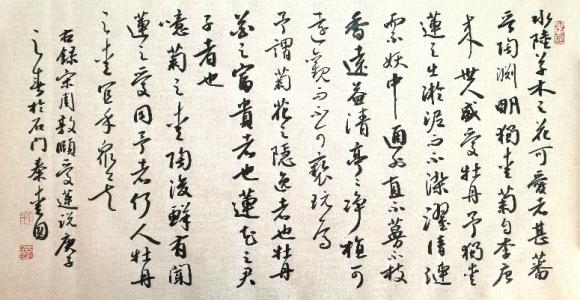 水陸草木之花可愛者甚蕃
晉陶淵明獨愛菊自李唐
来世人盛愛牡丹予獨愛
蓮之出淤泥而不染濯清漣
而不妖中通外直不蔓不枝
香遠益清亭々淨植可
遠觀而不可褻玩焉
予謂菊花之隱逸者也牡丹
花之富貴者也蓮花之君
子者也
噫菊之愛陶後鮮有聞
蓮之愛同予者何人牡丹
之愛宜乎眾矣
右録宋周敦頤愛蓮説庚子
之春於石門秦愛国